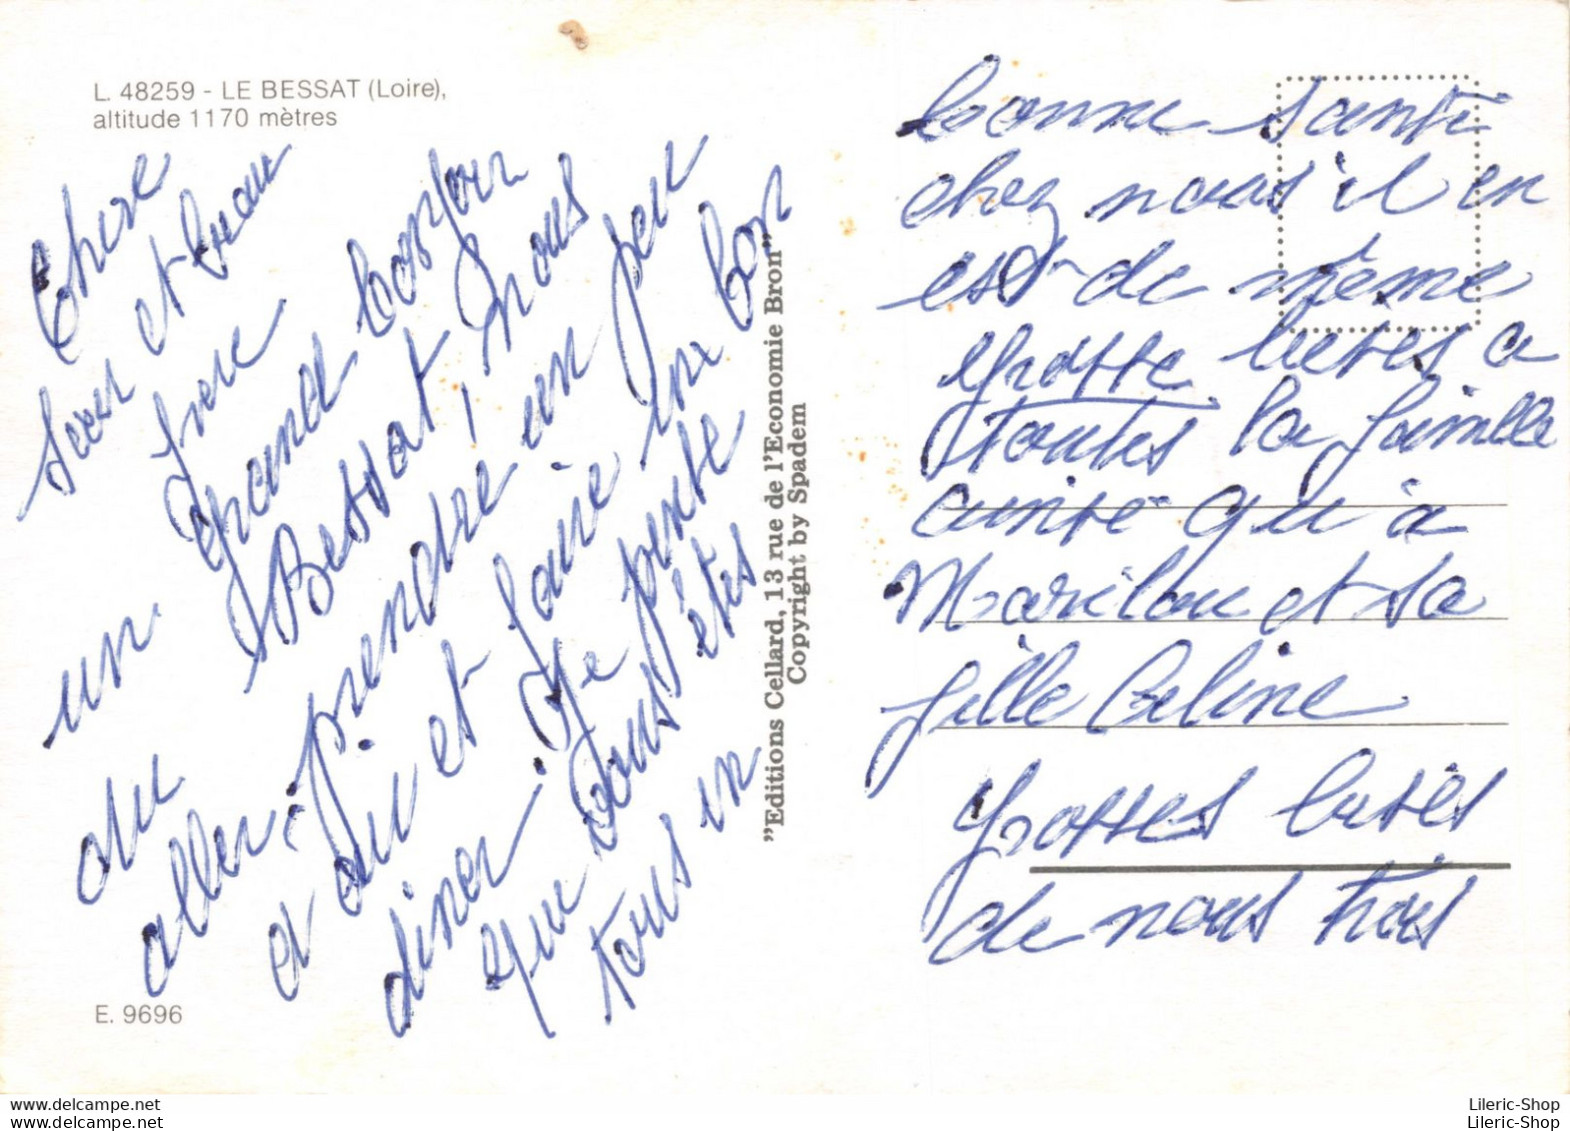 L. 48259 - LE BESSAT (Loire),
altitude 1170 mètres
Chere
seur et beau
frere
un grand bonjour
du Bessat, nous
aller prendre un peu
a du et faire un bon
diner. Je pense
que vous êtes
tous en
E. 9696
"Editions Cellard, 13 rue de l'Economie Bron"
Copyright by Spadem
bonne santé
chez nous il en
est de même
grosse bises a
toutes la famille
ainse qu'à
Marilou et sa
fille Celine
grosses bises
de nous trois
delcampe.net
Lileric-Shop
delcampe.net
Lileric-Shop